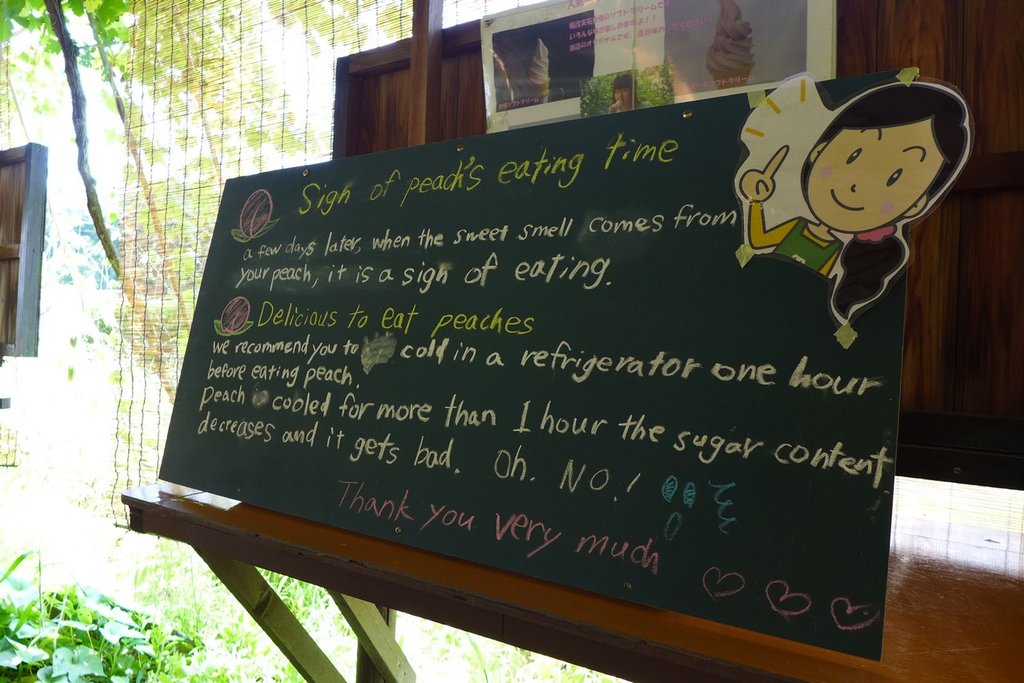 人気
いろんな
当店のオリジナルです。
ソフトクリーム
Sign of peach's eating time
a few days later, when the sweet smell comes from
your peach, it is a sign of eating.
Delicious to eat peaches
we recommend you to cold in a refrigerator one hour
before eating peach.
Peach is cooled for more than 1 hour the sugar content
decreases and it gets bad. Oh. NO.!
Thank you very much